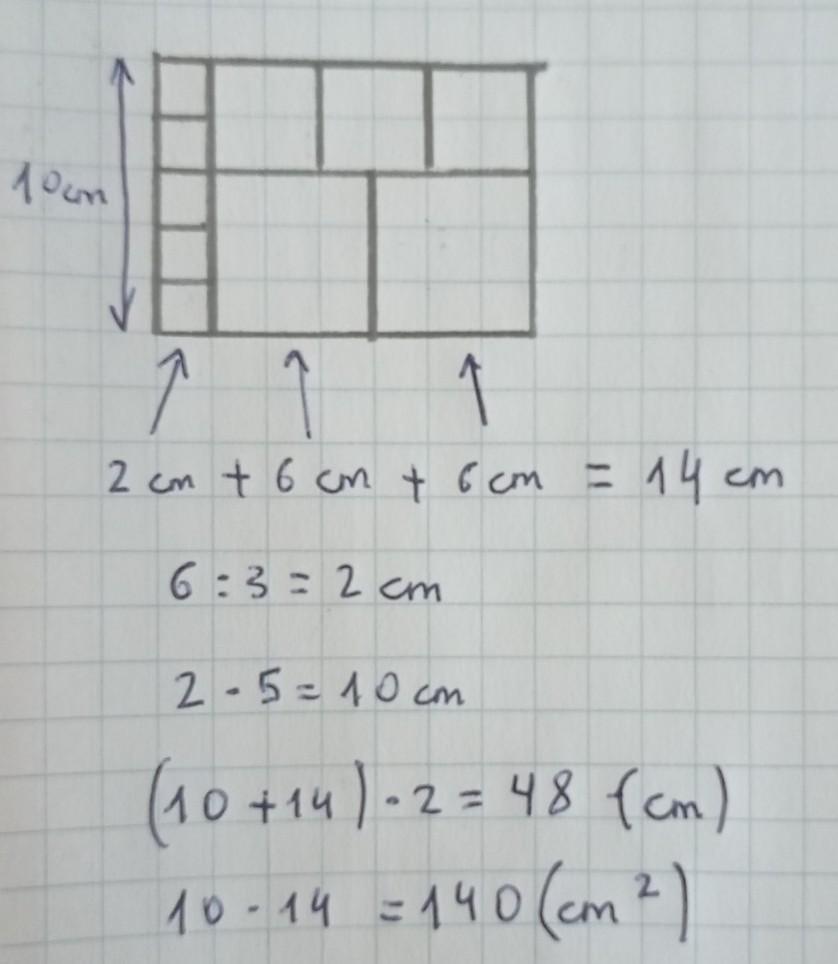 10cm
2 cm + 6 cm + 6 cm = 14 cm
6 : 3 = 2 cm
2 · 5 = 10 cm
(10 + 14) · 2 = 48 (cm)
10 · 14 = 140 (cm²)